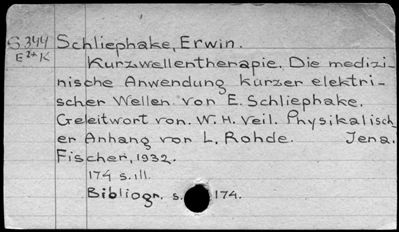 S344 Schliephake, Erwin.
E2+K Kurzwellentherapie. Die medizi-
nische Anwendung kurzer elektri-
scher Wellen von E. Schliephake.
Geleitwort von W. H. Veil. Physikalisch-
er Anhang von L. Rohde. Jena.
Fischer, 1932.
174 s. ill.
Bibliogr. s. 174.